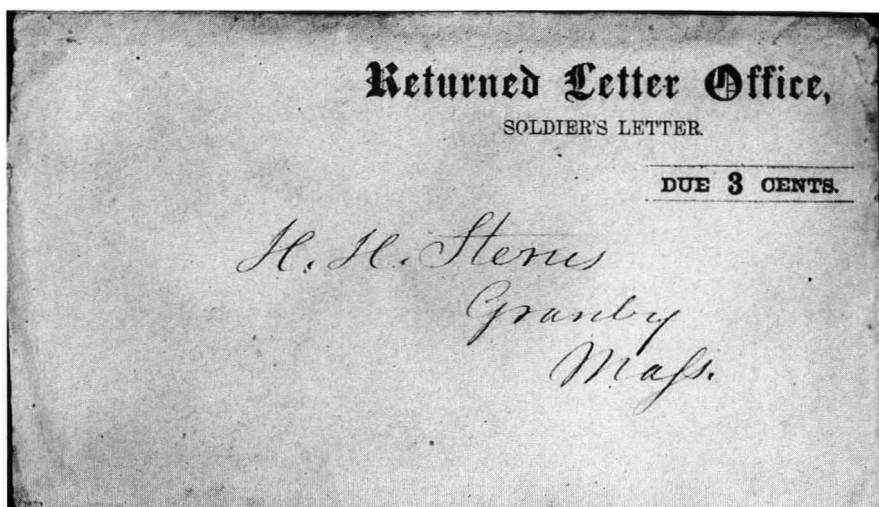 Returned Letter Office,
SOLDIER'S LETTER.
DUE 3 CENTS.
H. H. Sterns
Granby
Mass.